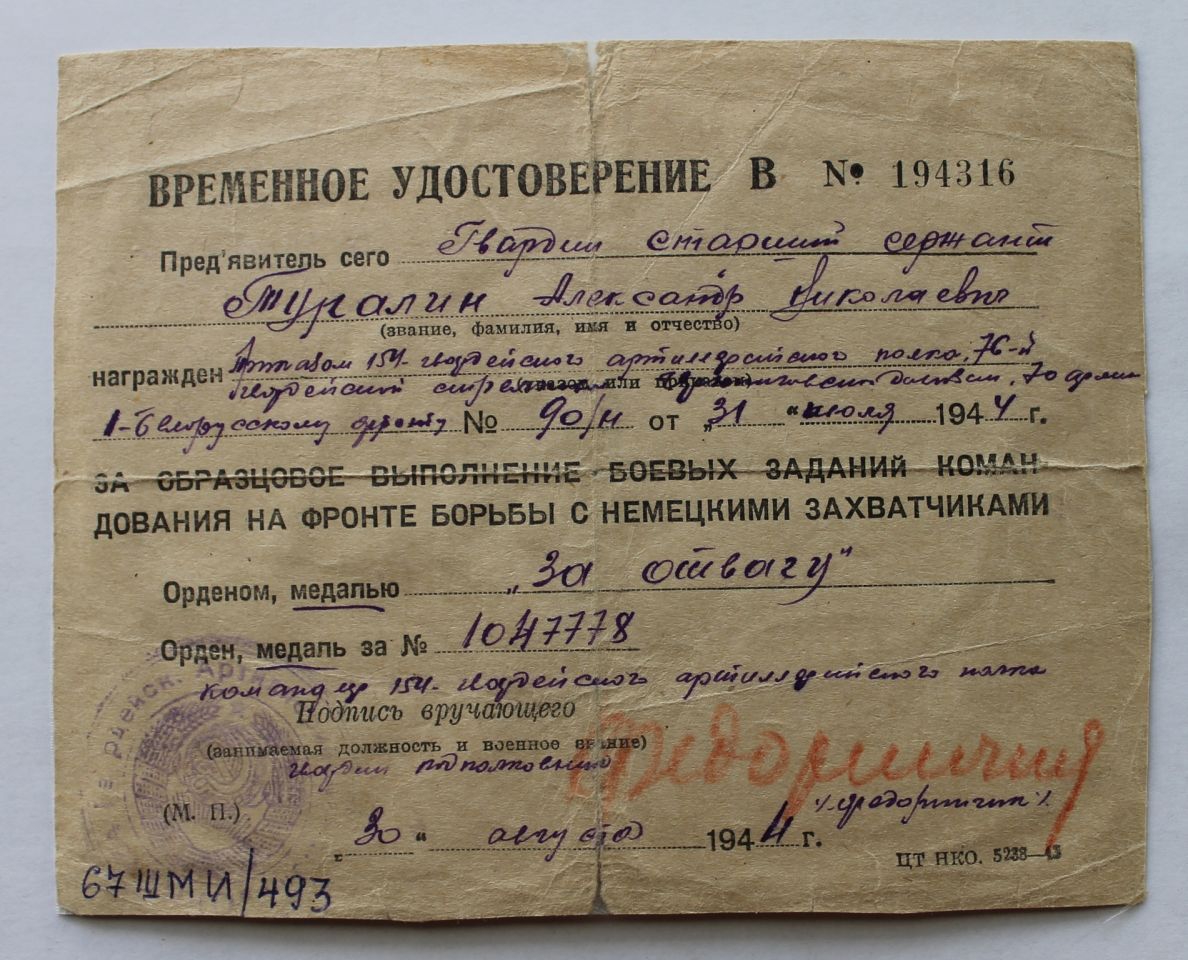 ВРЕМЕННОЕ УДОСТОВЕРЕНИЕ В № 194316
Пред'явитель сего Гвардии старший сержант
Туралин Александр Николаевич
(звание, фамилия, имя и отчество)
награжден Приказом 154-гвардейского артиллерийского полка, 76-й
гвардейской Черниговской дивизии, 70 армии
1-Белорусскому фронту № 90/н от „31 "июля 1944 г.
ЗА ОБРАЗЦОВОЕ ВЫПОЛНЕНИЕ БОЕВЫХ ЗАДАНИЙ КОМАН
ДОВАНИЯ НА ФРОНТЕ БОРЬБЫ С НЕМЕЦКИМИ ЗАХВАТЧИКАМИ
Орденом, медалью „За отвагу"
Орден, медаль за № 1047778
командир 154-гвардейского артиллерийского полка
Подпись вручающего
(занимаемая должность и военное звание)
гвардии подполковник
Федоринчик
/Федоринчик/
(М. П.)
„30" августа 1944 г.
ЦТ НКО. 5238—43
67 ШМИ/493